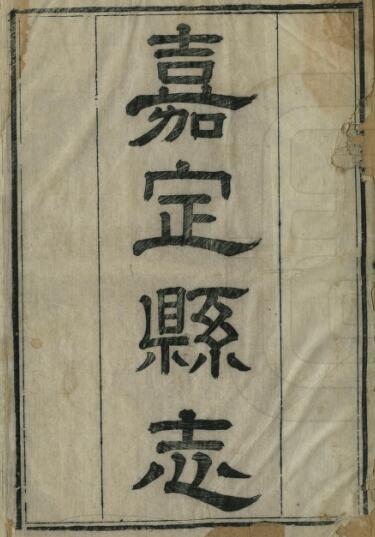 嘉定縣志